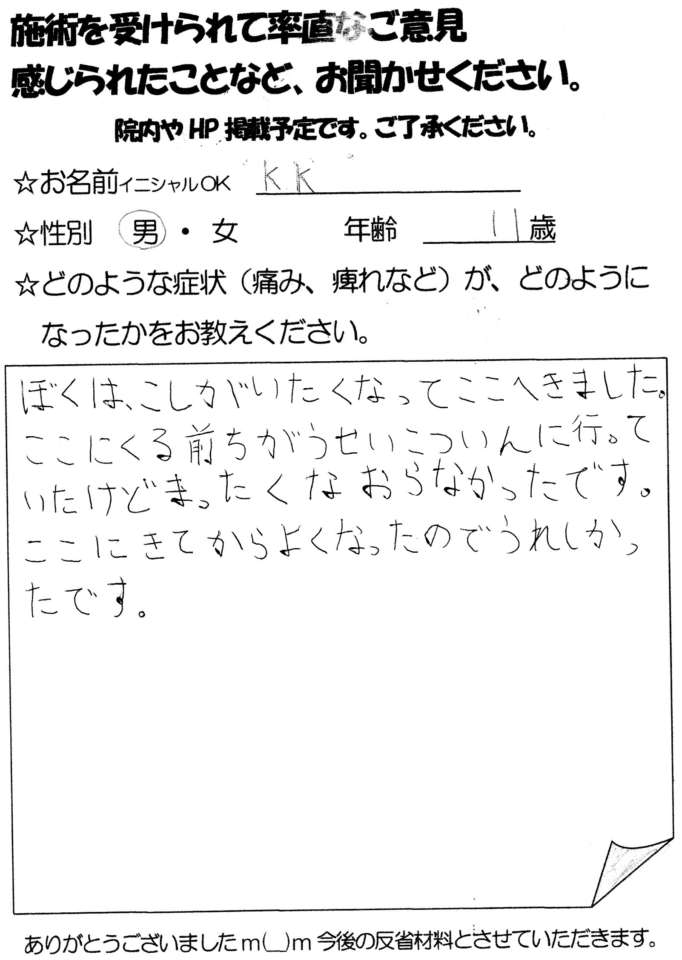 施術を受けられて率直なご意見
感じられたことなど、お聞かせください。
院内やHP掲載予定です。ご了承ください。
☆お名前イニシャルOK KK
☆性別 男・女 年齢 11歳
☆どのような症状（痛み、痺れなど）が、どのように
なったかをお教えください。
ぼくは、こしがいたくなってここへきました。
ここにくる前ちがうせいこついんに行って
いたけどまったくなおらなかったです。
ここにきてからよくなったのでうれしかっ
たです。
ありがとうございましたm(__)m今後の反省材料とさせていただきます。